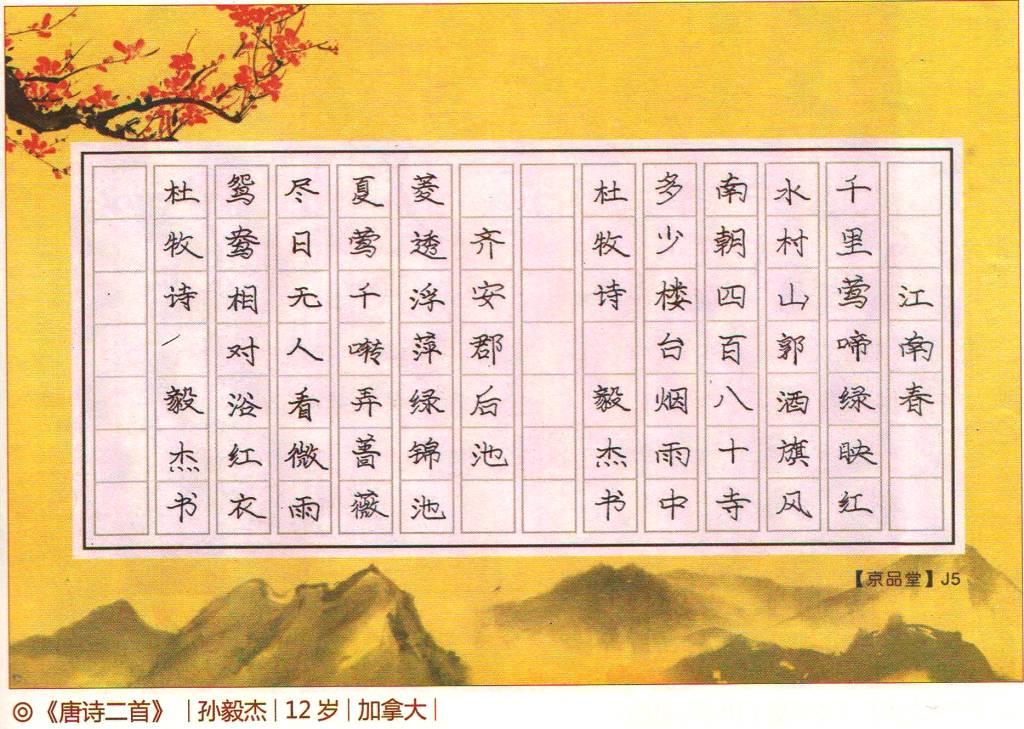 江南春
千里莺啼绿映红
水村山郭酒旗风
南朝四百八十寺
多少楼台烟雨中
杜牧诗 毅杰书
齐安郡后池
菱透浮萍绿锦池
夏莺千啭弄蔷薇
尽日无人看微雨
鸳鸯相对浴红衣
杜牧诗 毅杰书
【京品堂】J5
◎《唐诗二首》|孙毅杰|12岁|加拿大|